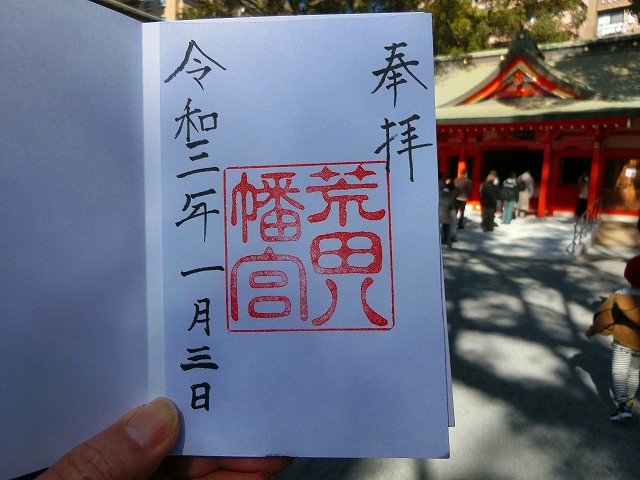 奉拝
荒田八
幡宮
令和三年一月三日